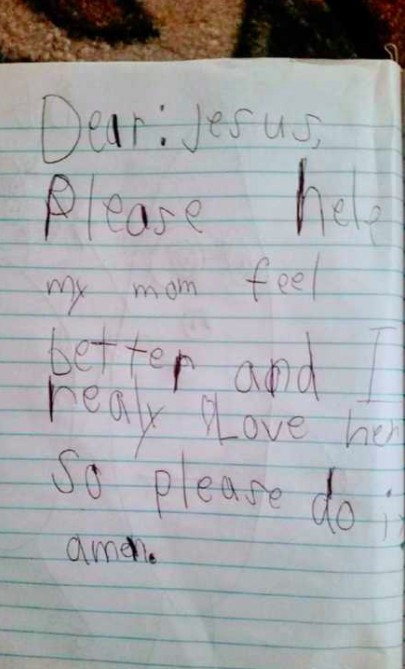 Dear: Jesus,
Please help
my mom feel
better and I
realy Love her
so please do i
amen.